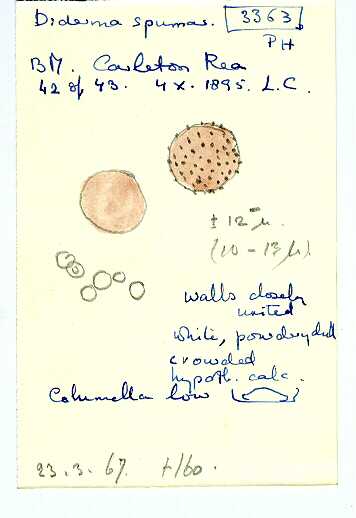 Diderma spumar. 3363
PH
BM. Carleton Rea
42 of 43. 4 x. 1895. L.C.
± 12 µ.
(10 - 13 µ)
walls closely
united
white, powdery
crowded
hypoth. calc.
Columella low
23.3.67.